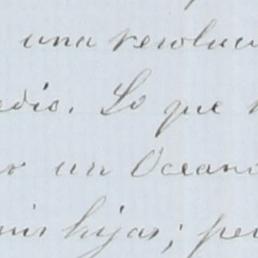 una revoluc
edio. Lo que
un Oceano
mis hijas; per